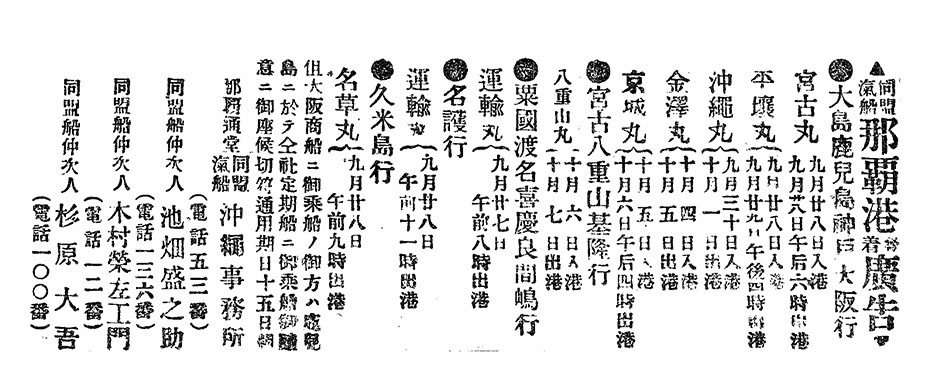 ▲同盟汽船那覇港發着廣告
●大島鹿兒島神戸大阪行
宮古丸 九月廿八日入港 九月廿八日午后六時出港
平壤丸 九月廿八日入港 九月廿九日午後四時出港
沖繩丸 九月三十日入港 十月一日出港
金澤丸 十月四日入港 十月五日出港
京城丸 十月五日入港 十月六日午后四時出港
●宮古八重山基隆行
八重山丸 十月六日入港 十月七日出港
●粟國渡名喜慶良間嶋行
運輸丸 九月廿七日 午前八時出港
●名護行
運輸丸 九月廿八日 午前十一時出港
●久米島行
名草丸 九月廿八日 午前九時出港
但大阪商船ニ御乘船ノ御方ハ鹿兒
島ニ於テ仝社定期船ニ御乘船御隨
意ニ御座候切符通用期日十五日間
那覇通堂 同盟汽船 沖繩事務所
(電話五三番)
同盟船仲次人 池畑盛之助
(電話一三六番)
同盟船仲次人 木村榮左工門
(電話一二番)
同盟船仲次人 杉原大吾
(電話一〇〇番)